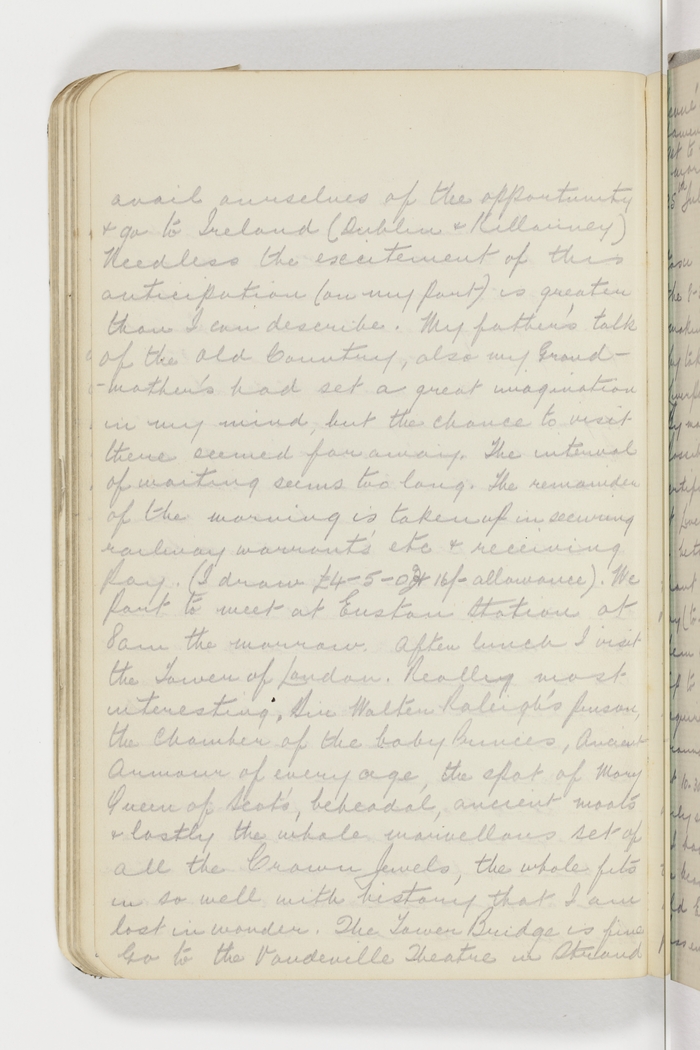 avail ourselves of the opportunity
& go to Ireland (Dublin & Killarney)
Needless the excitement of this
anticipation (on my part) is greater
than I can describe. My father's talk
of the old Country, also my Grand-
mother's had set a great imagination
in my mind, but the chance to visit
there seemed far away. The interval
of waiting seems too long. The remainder
of the morning is taken up in securing
railway warrants etc & receiving
Pay. (I draw £4-5-0 & 16/- allowance). We
part to meet at Euston Station at
8am the morrow. After lunch I visit
the Tower of London. Really most
interesting, Sir Walter Raleigh's prison,
the Chamber of the baby Princes, Ancient
Armour of every age, the spot of Mary
Queen of Scots, beheadal, ancient moats
& lastly the whole marvellous set of
all the Crown Jewels, the whole fits
in so well with history that I am
lost in wonder. The Tower Bridge is fine
Go to the Vaudeville Theatre in Strand